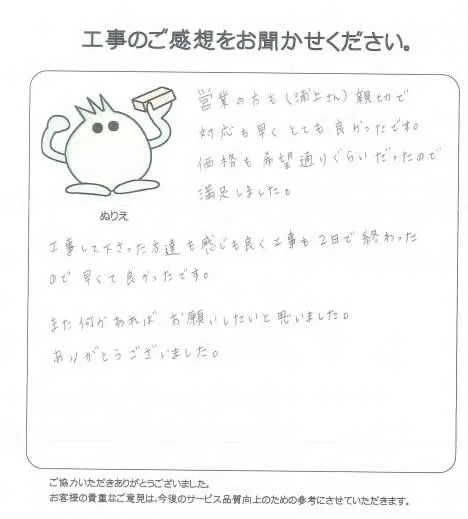 工事のご感想をお聞かせください。
営業の方も(浦上さん)親切で
対応も早くとても良かったです。
価格も希望通りぐらいだったので
満足しました。
ぬりえ
工事して下さった方達も感じも良く工事も2日で終わった
ので早くて良かったです。
また何かあれば、お願いしたいと思いました。
ありがとうございました。
ご協力いただきありがとうございました。
お客様の貴重なご意見は、今後のサービス品質向上のための参考にさせていただきます。